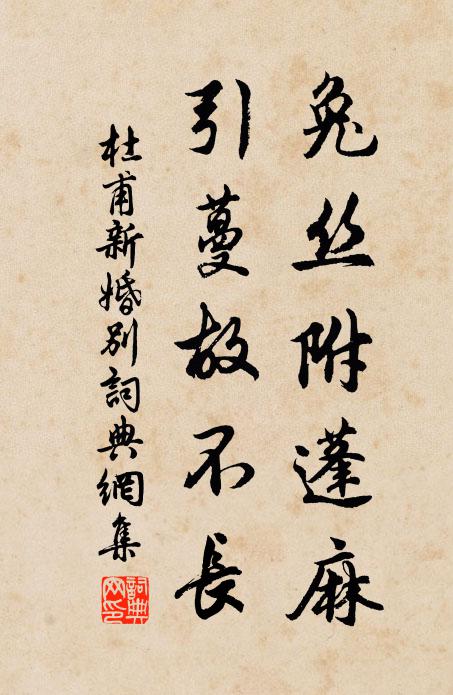 兔丝附蓬麻
引蔓故不長
杜甫新婚别詞典網集
詞典网印